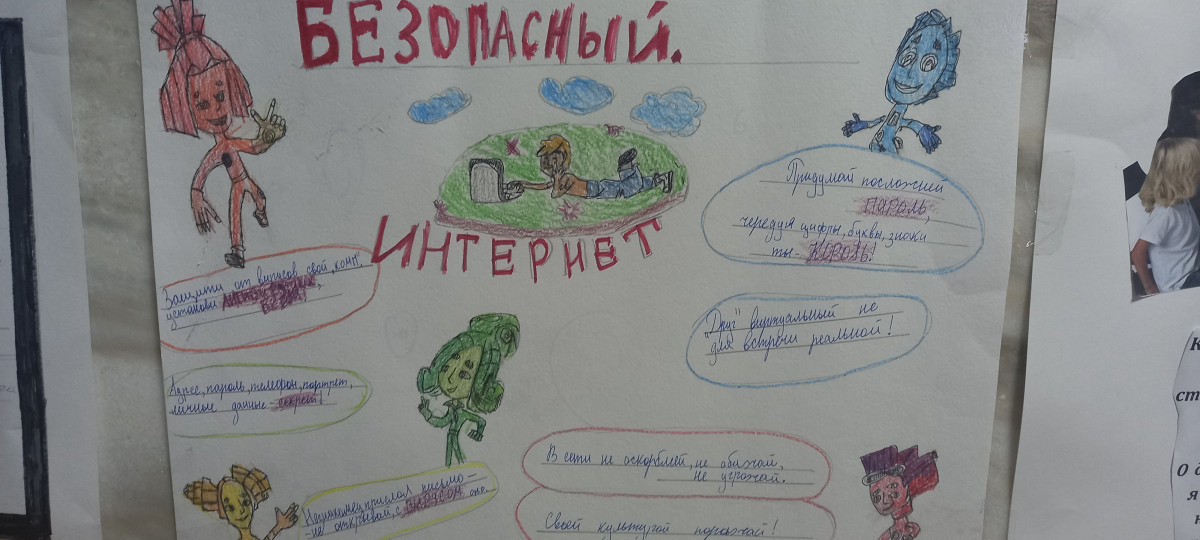 БЕЗОПАСНЫЙ.
ИНТЕРНЕТ
Придумай посложней
ПАРОЛЬ,
чередуя цифры, буквы, знаки
ты- КОРОЛЬ!
Защити от вирусов свой "комп",
установи
"Друг" виртуальный не
для встречи реальной!
Адрес, пароль, телефон, портрет,
личные данные- секрет!
Незнакомец прислал письмо-
-не открывай, с ВИРУСОМ оно.
В сети не оскорбляй, не обижай,
не угрожай.
Своей культурой поражай!
К
ст
о
я
н